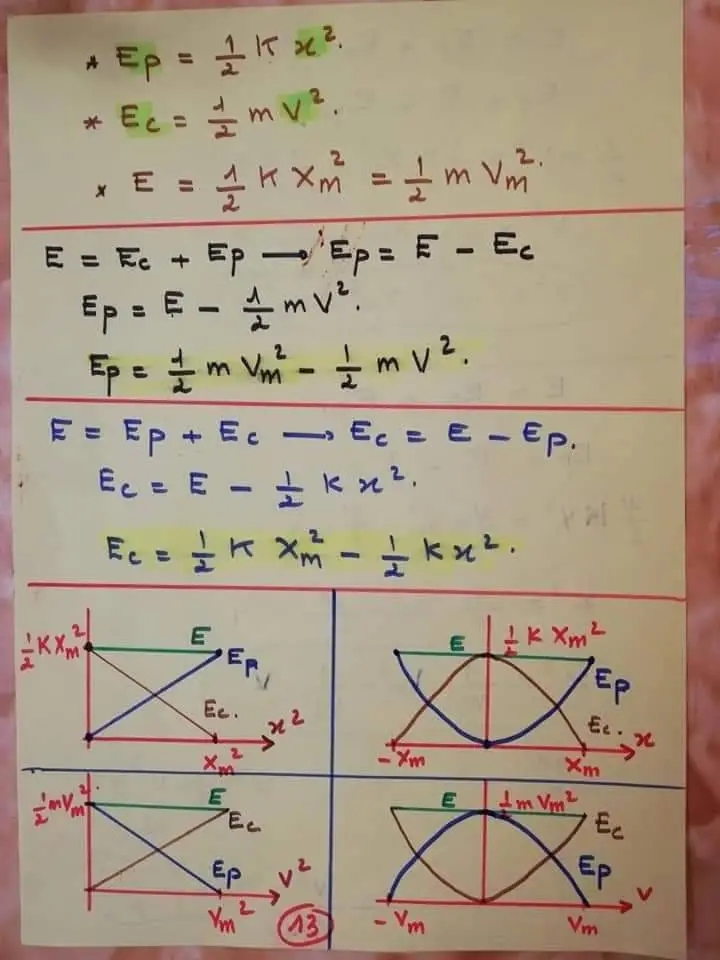 * Ep = 1/2 K x².
* Ec = 1/2 m V².
* E = 1/2 K Xm² = 1/2 m Vm².
E = Ec + Ep → Ep = E - Ec
Ep = E - 1/2 m V².
Ep = 1/2 m Vm² - 1/2 m V².
E = Ep + Ec → Ec = E - Ep.
Ec = E - 1/2 K x².
Ec = 1/2 K Xm² - 1/2 K x².
1/2 K Xm²
E
Ep
Ec.
x²
Xm²
E
1/2 K Xm²
Ep
Ec.
x
-Xm
Xm
1/2 m Vm².
E
Ec
Ep
V²
Vm²
E
1/2 m Vm²
Ec
Ep
V
-Vm
Vm
13